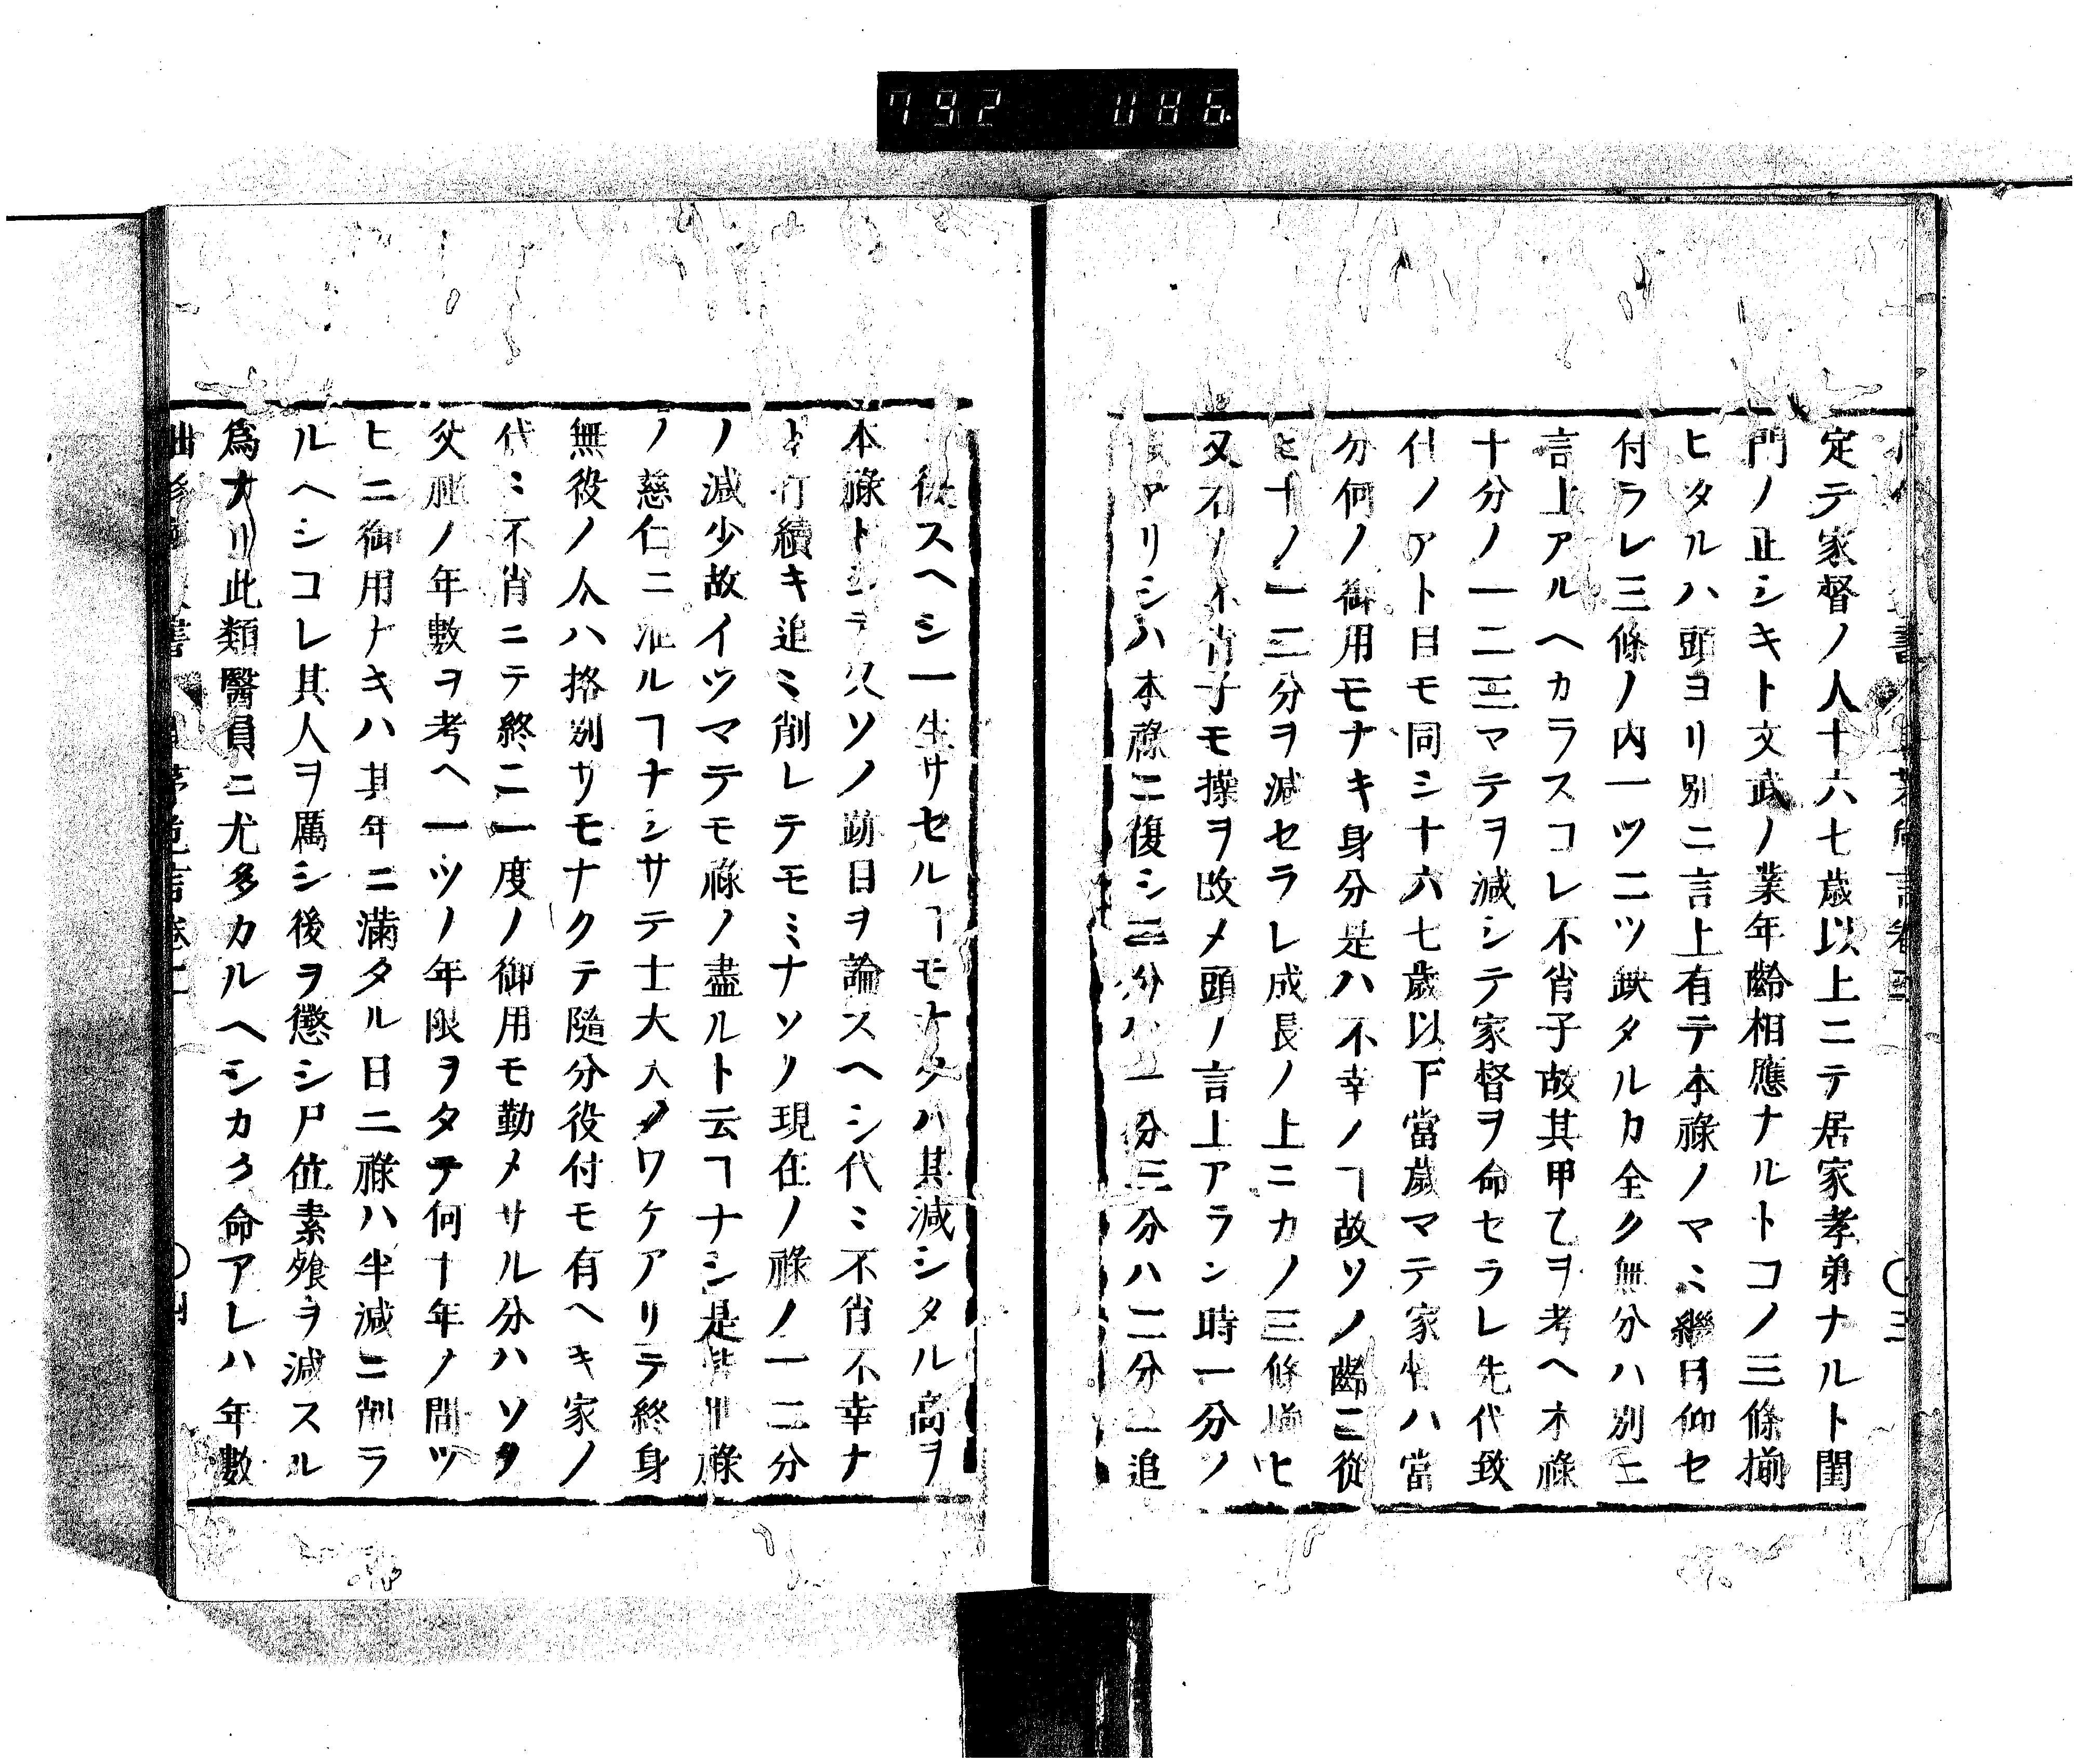 792 086
定テ家督ノ人十六七歳以上ニテ居家孝弟ナルト閨
門ノ正シキト文武ノ業年齡相應ナルトコノ三條揃
ヒタルハ頭ヨリ別ニ言上有テ本祿ノマミ繼目仰セ
付ラレ三條ノ内一ツ二ツ缺タルカ全ク無分ハ別ニ
言上アルヘカラスコレ不肖子故其甲乙ヲ考ヘ本祿
十分ノ一二三マテヲ減シテ家督ヲ命セラレ先代致
仕ノアト目モ同シ十六七歳以下當歲マテ家督ハ當
分何ノ御用モナキ身分是ハ不幸ノヿ故ソノ齡ニ從
ヒ十ノ一二分ヲ減セラレ成長ノ上ニカノ三條揃ヒ
又右ノ不肖子モ操ヲ改メ頭ノ言上アラン時一分ノ
減アリシハ本祿ニ復シ二分ハ一分三分ハ二分ニ追
復スヘシ一生サセルヿモナクハ其減シタル高ヲ
本祿トシテ久ソノ勤日ヲ論スヘシ代ミ不肖不幸ナ
ト打續キ追ミ削レテモミナソノ現在ノ祿ノ一二分
ノ減少故イツマテモ祿ノ盡ルト云ヿナシ是世祿
ノ慈仁ニ准ルヿナシサテ士大人ノワケアリテ終身
無役ノ人ハ格別サモナクテ隨分役付モ有ヘキ家ノ
代ミ不肖ニテ終ニ一度ノ御用モ勤メサル分ハソタ
父祖ノ年數ヲ考ヘ一ツノ年限ヲタテ何十年ノ間ツ
ヒニ御用ナキハ其年ニ滿タル日ニ祿ハ半減ニ削ラ
ルヘシコレ其人ヲ厲シ後ヲ懲シ尸位素飱ヲ減スル
爲ナリ此類醫員ニ尤多カルヘシカク命アレハ年數